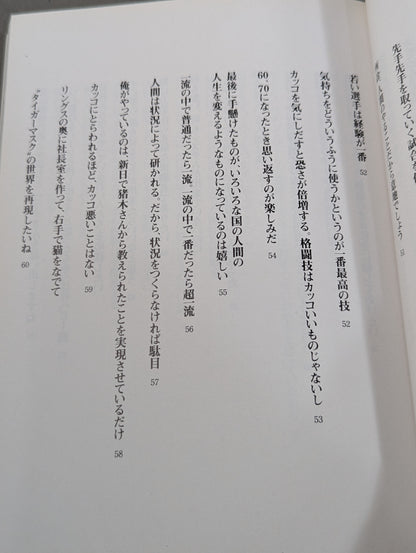 先手先手を取っていく。試合
若い選手は経験が一番 52
気持ちをどういうふうに使うかというのが一番最高の技 52
カッコを気にしだすと恐さが倍増する。格闘技はカッコいいものじゃないし 53
60、70になったとき思い返すのが楽しみだ 54
最後に手懸けたものが、いろいろな国の人間の
人生を変えるようなものになっているのは嬉しい 55
一流の中で普通だったら一流。一流の中で一番だったら超一流 56
人間は状況によって研かれる。だから、状況をつくらなければ駄目 57
俺がやっているのは、新日で猪木さんから教えられたことを実現させているだけ 58
カッコにとらわれるほど、カッコ悪いことはない 59
リングスの奥に社長室を作って、右手で猫をなでて
〝タイガーマスク〟の世界を再現したいね 60